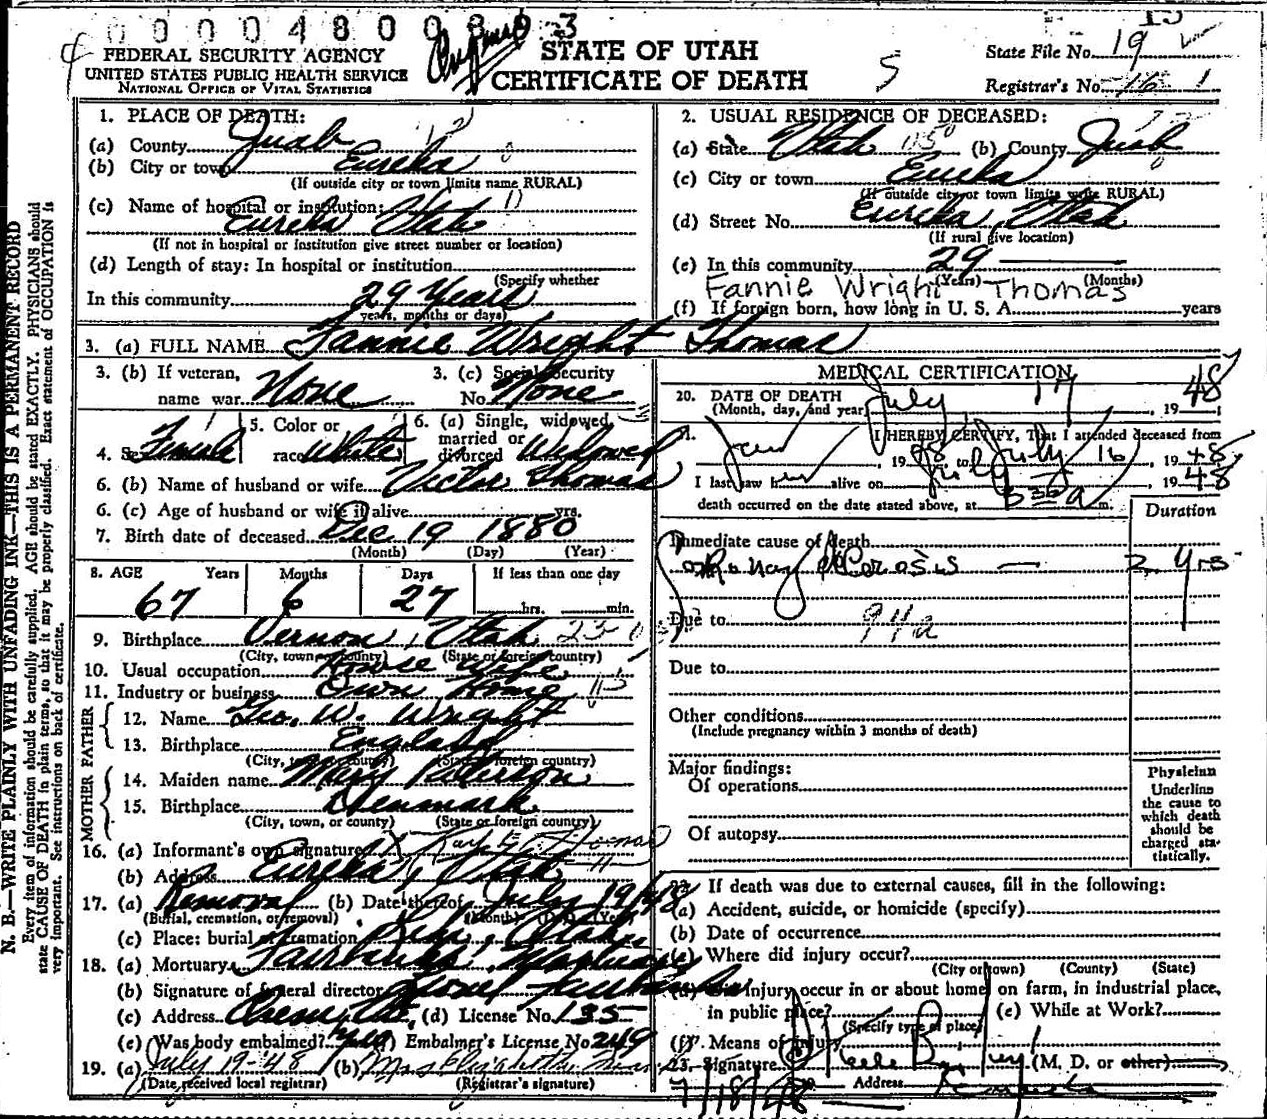 0 0 0 0 4 8 0 0
FEDERAL SECURITY AGENCY
UNITED STATES PUBLIC HEALTH SERVICE
NATIONAL OFFICE OF VITAL STATISTICS
STATE OF UTAH
CERTIFICATE OF DEATH
5
State File No. 19
Registrar's No. 16
N. B.—WRITE PLAINLY WITH UNFADING INK—THIS IS A PERMANENT RECORD
Every item of information should be carefully supplied. AGE should be stated EXACTLY. PHYSICIANS should
state CAUSE OF DEATH in plain terms, so that it may be properly classified. Exact statement of OCCUPATION is
very important. See instructions on back of certificate.
1. PLACE OF DEATH:
(a) County Juab
(b) City or town Eureka
(If outside city or town limits name RURAL)
(c) Name of hospital or institution:
Eureka Utah
(If not in hospital or institution give street number or location)
(d) Length of stay: In hospital or institution
(Specify whether
In this community 29 Years
years, months or days)
2. USUAL RESIDENCE OF DECEASED:
(a) State Utah (b) County Juab
(c) City or town Eureka
(If outside city or town limits write RURAL)
(d) Street No. Eureka, Utah
(If rural give location)
(e) In this community 29
(Years) (Months)
Fannie Wright Thomas
(f) If foreign born, how long in U. S. A. years
3. (a) FULL NAME Fannie Wright Thomas
3. (b) If veteran, name war None
3. (c) Social Security No. None
4. Sex Female
5. Color or race White
6. (a) Single, widowed, married or divorced Widowed
6. (b) Name of husband or wife Victor Thomas
6. (c) Age of husband or wife if alive yrs.
7. Birth date of deceased Dec 19 1880
(Month) (Day) (Year)
8. AGE Years Months Days If less than one day
67 6 27 hrs. min.
9. Birthplace Vernon, Utah
(City, town or county) (State or foreign country)
10. Usual occupation House Wife
11. Industry or business Own Home
FATHER
12. Name Geo. W. Wright
13. Birthplace England
(City, town or county) (State or foreign country)
MOTHER
14. Maiden name Mary Peterson
15. Birthplace Denmark
(City, town, or county) (State or foreign country)
16. (a) Informant's own signature Thomas
(b) Address Eureka, Utah
17. (a) Removal (b) Date thereof July 19 48
(Burial, cremation, or removal) (Month) (Day) (Year)
(c) Place: burial or cremation Utah
18. (a) Mortuary Fairbanks Mortuary
(b) Signature of funeral director
(c) Address (d) License No. 135
(e) Was body embalmed? Yes (f) Embalmer's License No. 249
19. (a) July 19-48 (b) Mrs Elizabeth
(Date received local registrar) (Registrar's signature)
MEDICAL CERTIFICATION
20. DATE OF DEATH
(Month, day, and year) July 17, 1948
21. I HEREBY CERTIFY, That I attended deceased from
Jan, 1948 to July 16, 1948
I last saw her alive on July, 1948
death occurred on the date stated above, at m.
Duration
Immediate cause of death
Coronary Sclerosis — 2 yrs
Due to 94a
Due to
Other conditions
(Include pregnancy within 3 months of death)
Major findings:
Of operations
Of autopsy
Physician
Underline
the cause to
which death
should be
charged sta-
tistically.
22. If death was due to external causes, fill in the following:
(a) Accident, suicide, or homicide (specify)
(b) Date of occurrence
(c) Where did injury occur?
(City or town) (County) (State)
(d) Did injury occur in or about home, on farm, in industrial place,
in public place? (e) While at Work?
(Specify type of place)
(f) Means of injury
23. Signature (M. D. or other)
7/18/48 Address Eureka